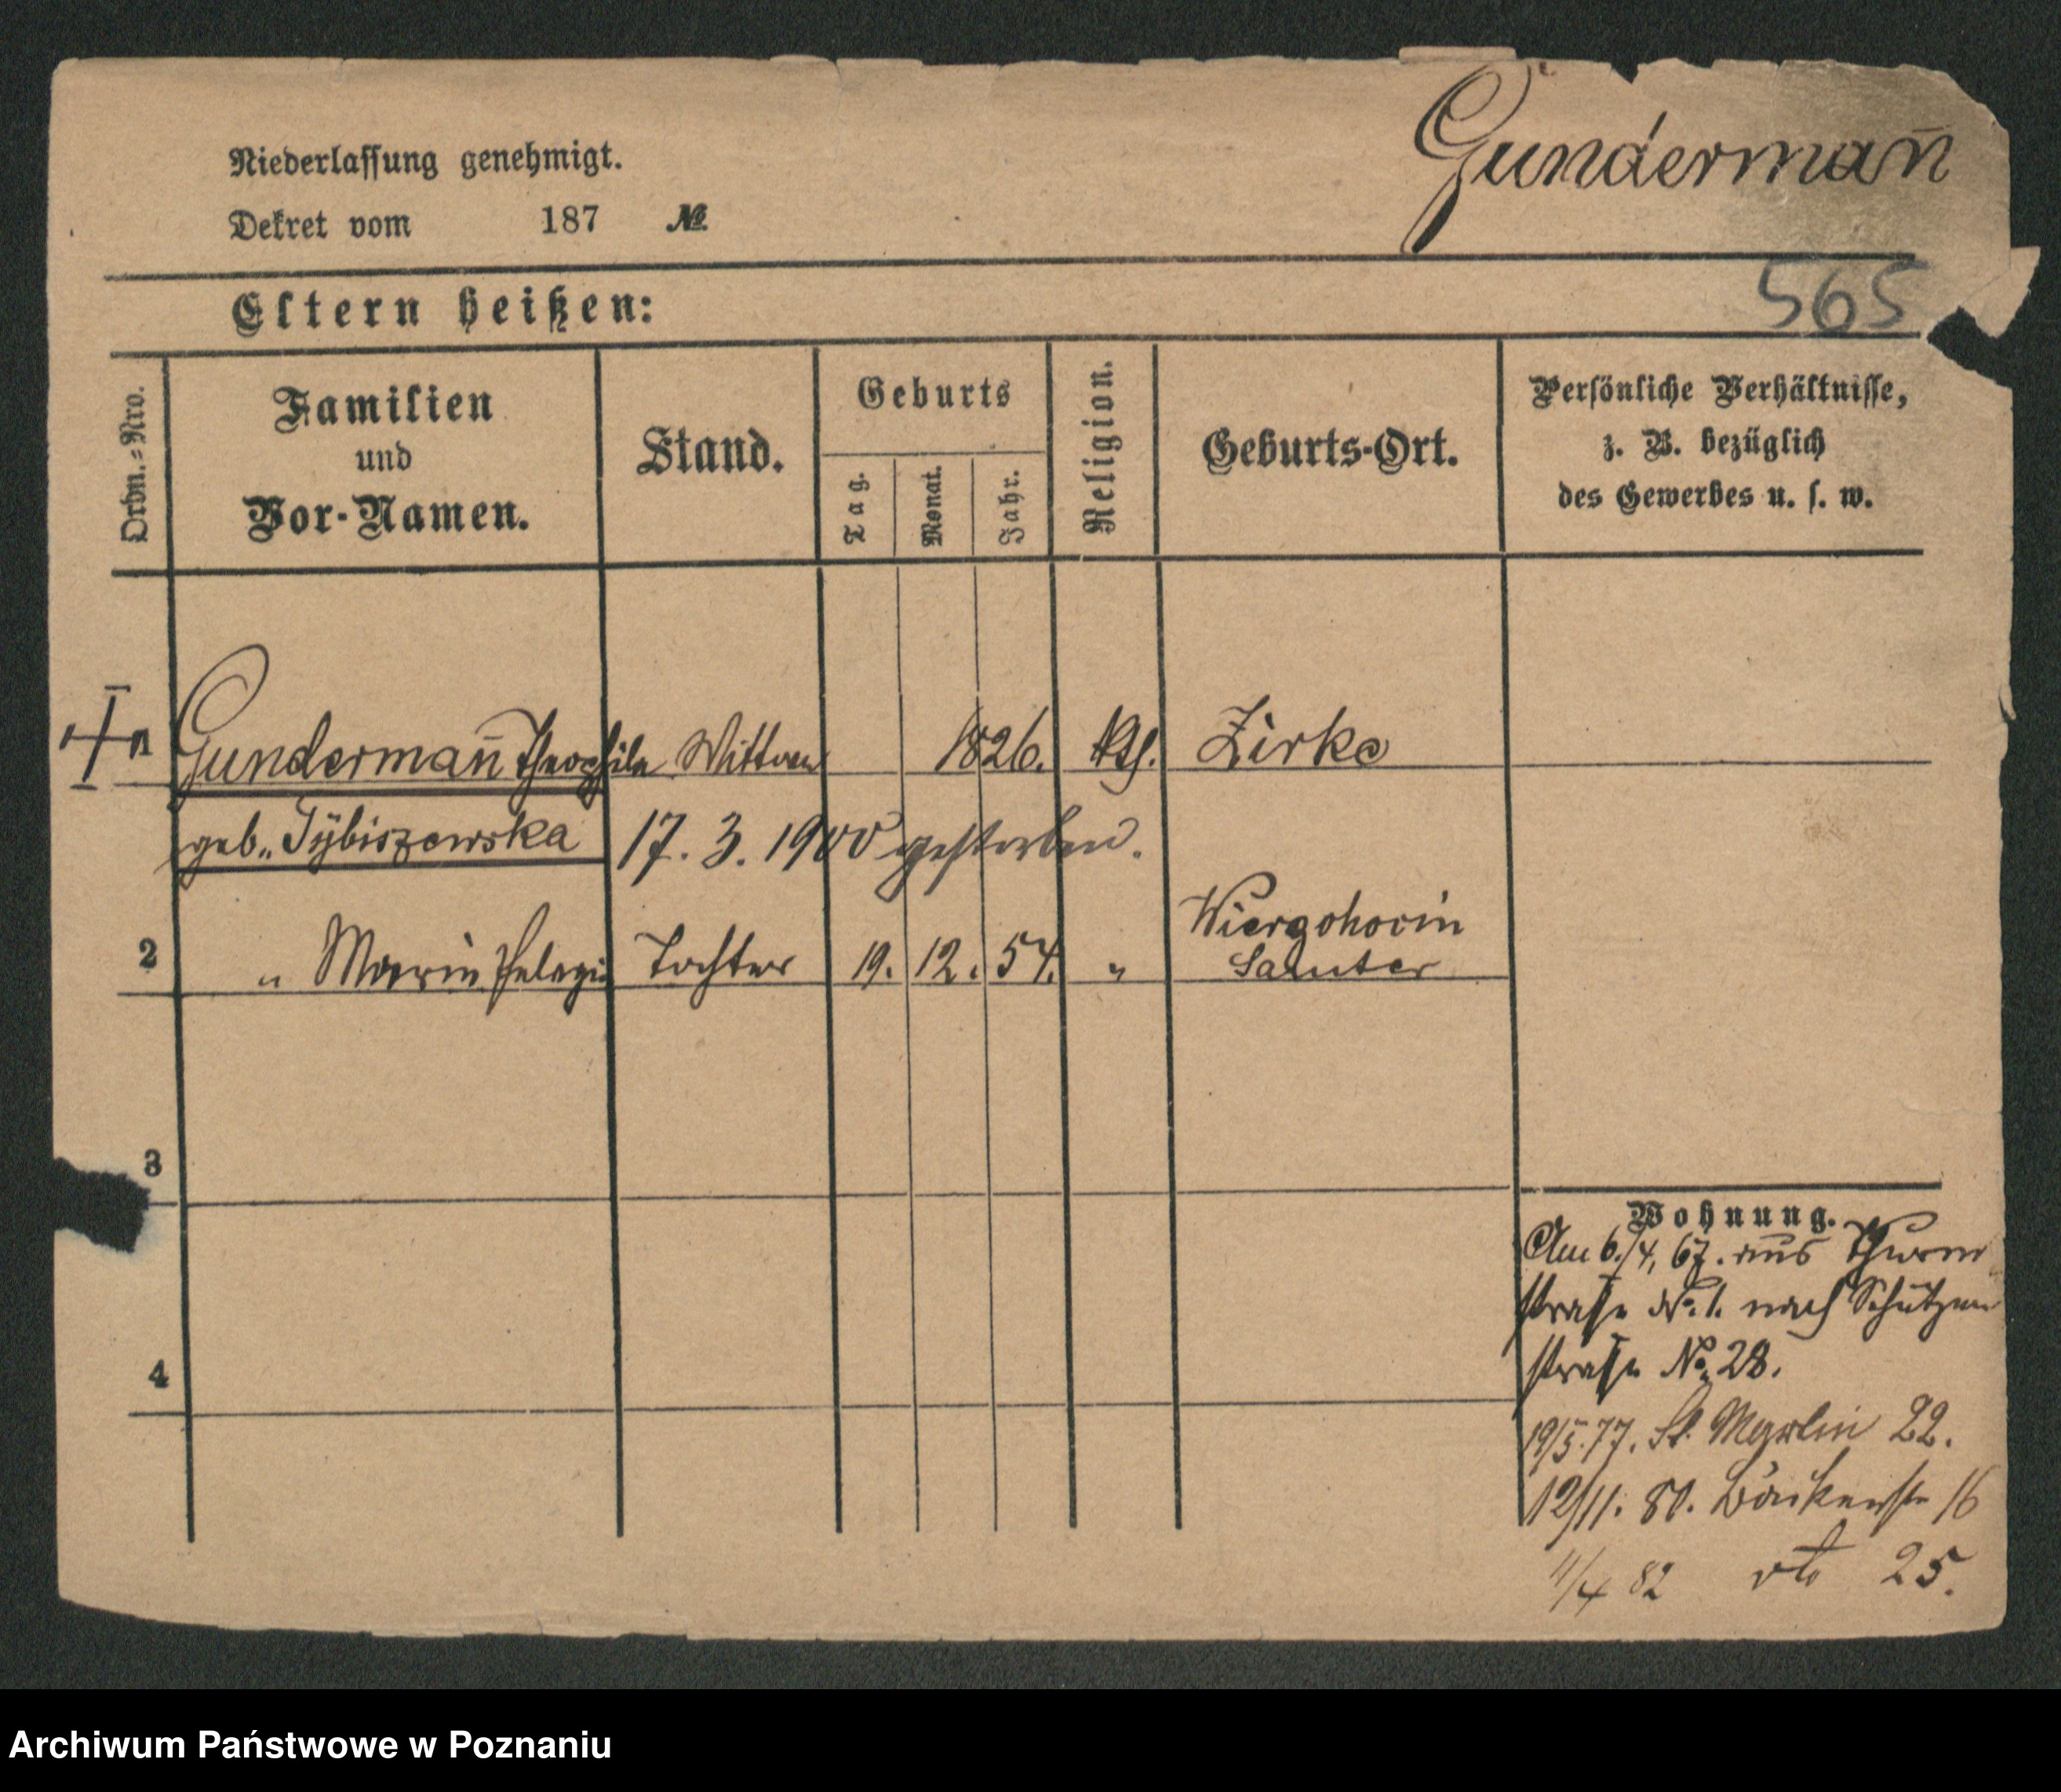 Gundermañ
Niederlassung genehmigt.
Dekret vom 187 №
565
Eltern heißen:
Ordn.-Nro.
Familien
und
Vor-Namen.
Stand.
Geburts
Tag.
Monat.
Jahr.
Religion.
Geburts-Ort.
Persönliche Verhältnisse,
z. B. bezüglich
des Gewerbes u. s. w.
1 Gundermañ Theophila Wittwe 1826. Kth. Zirke
geb. Tÿbiszewska 17. 3. 1900 gestorben.
2 " Marie Pelagia Tochter 19. 12. 54. "
Samter
3
4
Wohnung.
Am 6./4, 67. aus Thurm
straße No. 1. nach Schützen
straße No 28.
19/5. 77. St. Martin 22.
12/11. 80. Bäckerstr 16
11/4 82 dto 25.
Archiwum Państwowe w Poznaniu